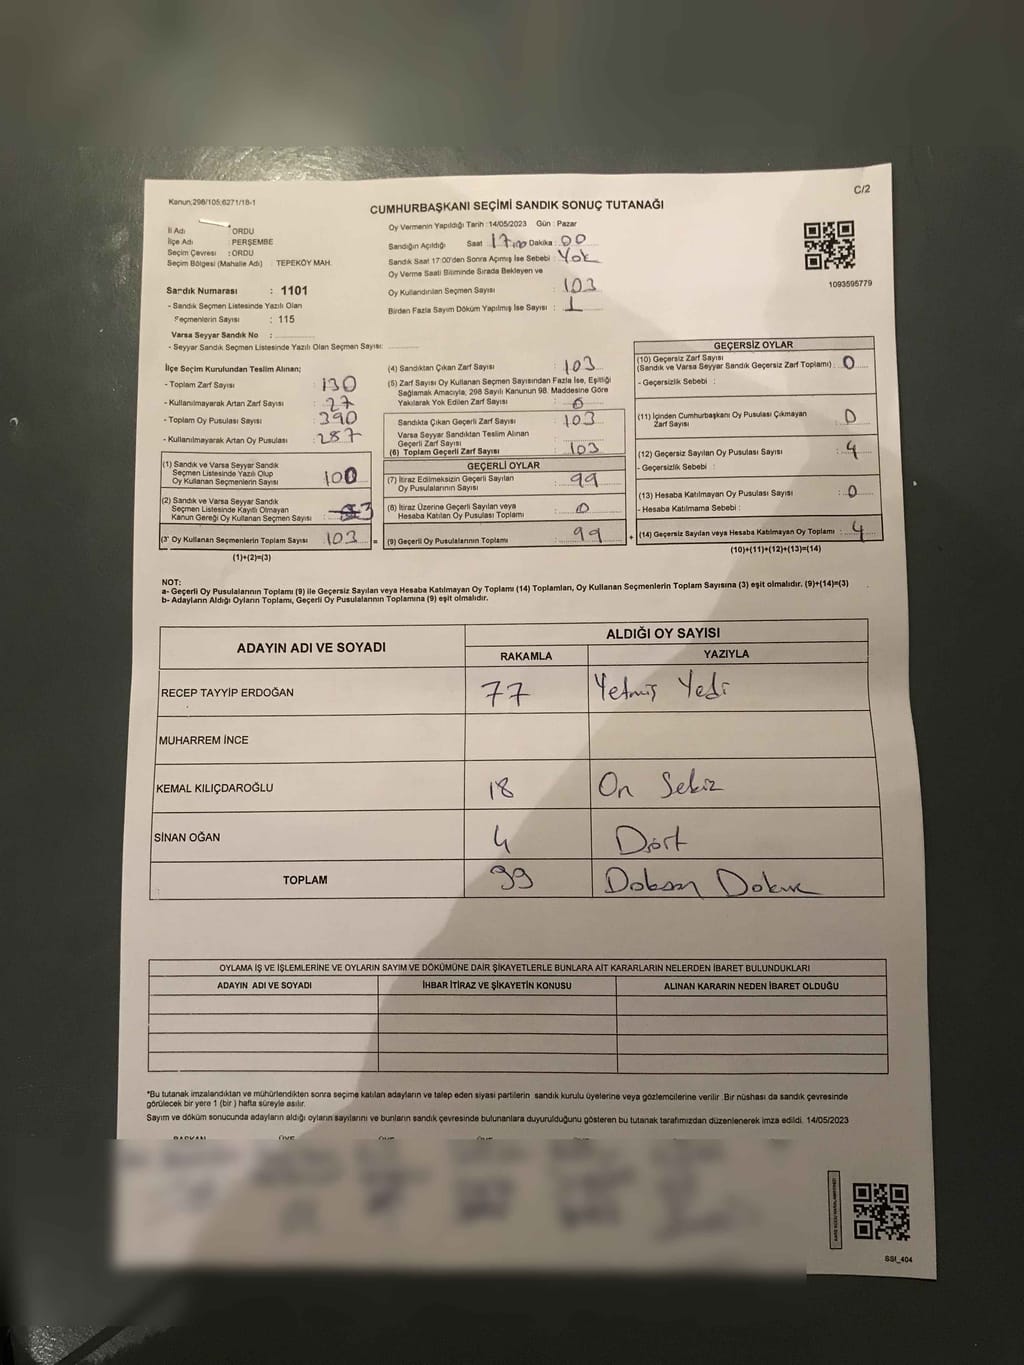 Kanun:298/105;6271/18-1
C/2
CUMHURBAŞKANI SEÇİMİ SANDIK SONUÇ TUTANAĞI
İl Adı : ORDU
İlçe Adı : PERŞEMBE
Seçim Çevresi : ORDU
Seçim Bölgesi (Mahalle Adı) : TEPEKÖY MAH.
Sandık Numarası : 1101
- Sandık Seçmen Listesinde Yazılı Olan
Seçmenlerin Sayısı : 115
Varsa Seyyar Sandık No :
- Seyyar Sandık Seçmen Listesinde Yazılı Olan Seçmen Sayısı:
Oy Vermenin Yapıldığı Tarih :14/05/2023 Gün : Pazar
Sandığın Açıldığı Saat 17:00 Dakika : 00
Sandık Saat 17:00'den Sonra Açımış İse Sebebi : Yok
Oy Verme Saati Bitiminde Sırada Bekleyen ve
Oy Kullandırılan Seçmen Sayısı : 103
Birden Fazla Sayım Döküm Yapılmış İse Sayısı : 1
1093595779
İlçe Seçim Kurulundan Teslim Alınan;
- Toplam Zarf Sayısı : 130
- Kullanılmayarak Artan Zarf Sayısı : 27
- Toplam Oy Pusulası Sayısı : 390
- Kullanılmayarak Artan Oy Pusulası : 287
(1) Sandık ve Varsa Seyyar Sandık
Seçmen Listesinde Yazılı Olup
Oy Kullanan Seçmenlerin Sayısı : 100
(2) Sandık ve Varsa Seyyar Sandık
Seçmen Listesinde Kayıtlı Olmayan
Kanun Gereği Oy Kullanan Seçmen Sayısı : 3
(3) Oy Kullanan Seçmenlerin Toplam Sayısı : 103 =
(1)+(2)=(3)
(4) Sandıktan Çıkan Zarf Sayısı : 103
(5) Zarf Sayısı Oy Kullanan Seçmen Sayısından Fazla İse, Eşitliği
Sağlamak Amacıyla, 298 Sayılı Kanunun 98. Maddesine Göre
Yakılarak Yok Edilen Zarf Sayısı : 0
Sandıkta Çıkan Geçerli Zarf Sayısı : 103
Varsa Seyyar Sandıktan Teslim Alınan
Geçerli Zarf Sayısı :
(6) Toplam Geçerli Zarf Sayısı : 103
GEÇERLİ OYLAR
(7) İtiraz Edilmeksizin Geçerli Sayılan
Oy Pusulalarının Sayısı : 99
(8) İtiraz Üzerine Geçerli Sayılan veya
Hesaba Katılan Oy Pusulası Toplamı : 0
(9) Geçerli Oy Pusulalarının Toplamı : 99 +
GEÇERSİZ OYLAR
(10) Geçersiz Zarf Sayısı
(Sandık ve Varsa Seyyar Sandık Geçersiz Zarf Toplamı) : 0
- Geçersizlik Sebebi :
(11) İçinden Cumhurbaşkanı Oy Pusulası Çıkmayan
Zarf Sayısı : 0
(12) Geçersiz Sayılan Oy Pusulası Sayısı : 4
- Geçersizlik Sebebi :
(13) Hesaba Katılmayan Oy Pusulası Sayısı : 0
- Hesaba Katılmama Sebebi :
(14) Geçersiz Sayılan veya Hesaba Katılmayan Oy Toplamı : 4
(10)+(11)+(12)+(13)=(14)
NOT:
a- Geçerli Oy Pusulalarının Toplamı (9) ile Geçersiz Sayılan veya Hesaba Katılmayan Oy Toplamı (14) Toplamları, Oy Kullanan Seçmenlerin Toplam Sayısına (3) eşit olmalıdır. (9)+(14)=(3)
b- Adayların Aldığı Oyların Toplamı, Geçerli Oy Pusulalarının Toplamına (9) eşit olmalıdır.
ADAYIN ADI VE SOYADI
ALDIĞI OY SAYISI
RAKAMLA YAZIYLA
RECEP TAYYİP ERDOĞAN 77 Yetmiş Yedi
MUHARREM İNCE
KEMAL KILIÇDAROĞLU 18 On Sekiz
SİNAN OĞAN 4 Dört
TOPLAM 99 Doksan Dokuz
OYLAMA İŞ VE İŞLEMLERİNE VE OYLARIN SAYIM VE DÖKÜMÜNE DAİR ŞİKAYETLERLE BUNLARA AİT KARARLARIN NELERDEN İBARET BULUNDUKLARI
ADAYIN ADI VE SOYADI İHBAR İTİRAZ VE ŞİKAYETİN KONUSU ALINAN KARARIN NEDEN İBARET OLDUĞU
*Bu tutanak imzalandıktan ve mühürlendikten sonra seçime katılan adayların ve talep eden siyasi partilerin sandık kurulu üyelerine veya gözlemcilerine verilir. Bir nüshası da sandık çevresinde
görülecek bir yere 1 (bir) hafta süreyle asılır.
Sayım ve döküm sonucunda adayların aldığı oyların sayılarını ve bunların sandık çevresinde bulunanlara duyurulduğunu gösteren bu tutanak tarafımızdan düzenlenerek imza edildi. 14/05/2023
SSI_404